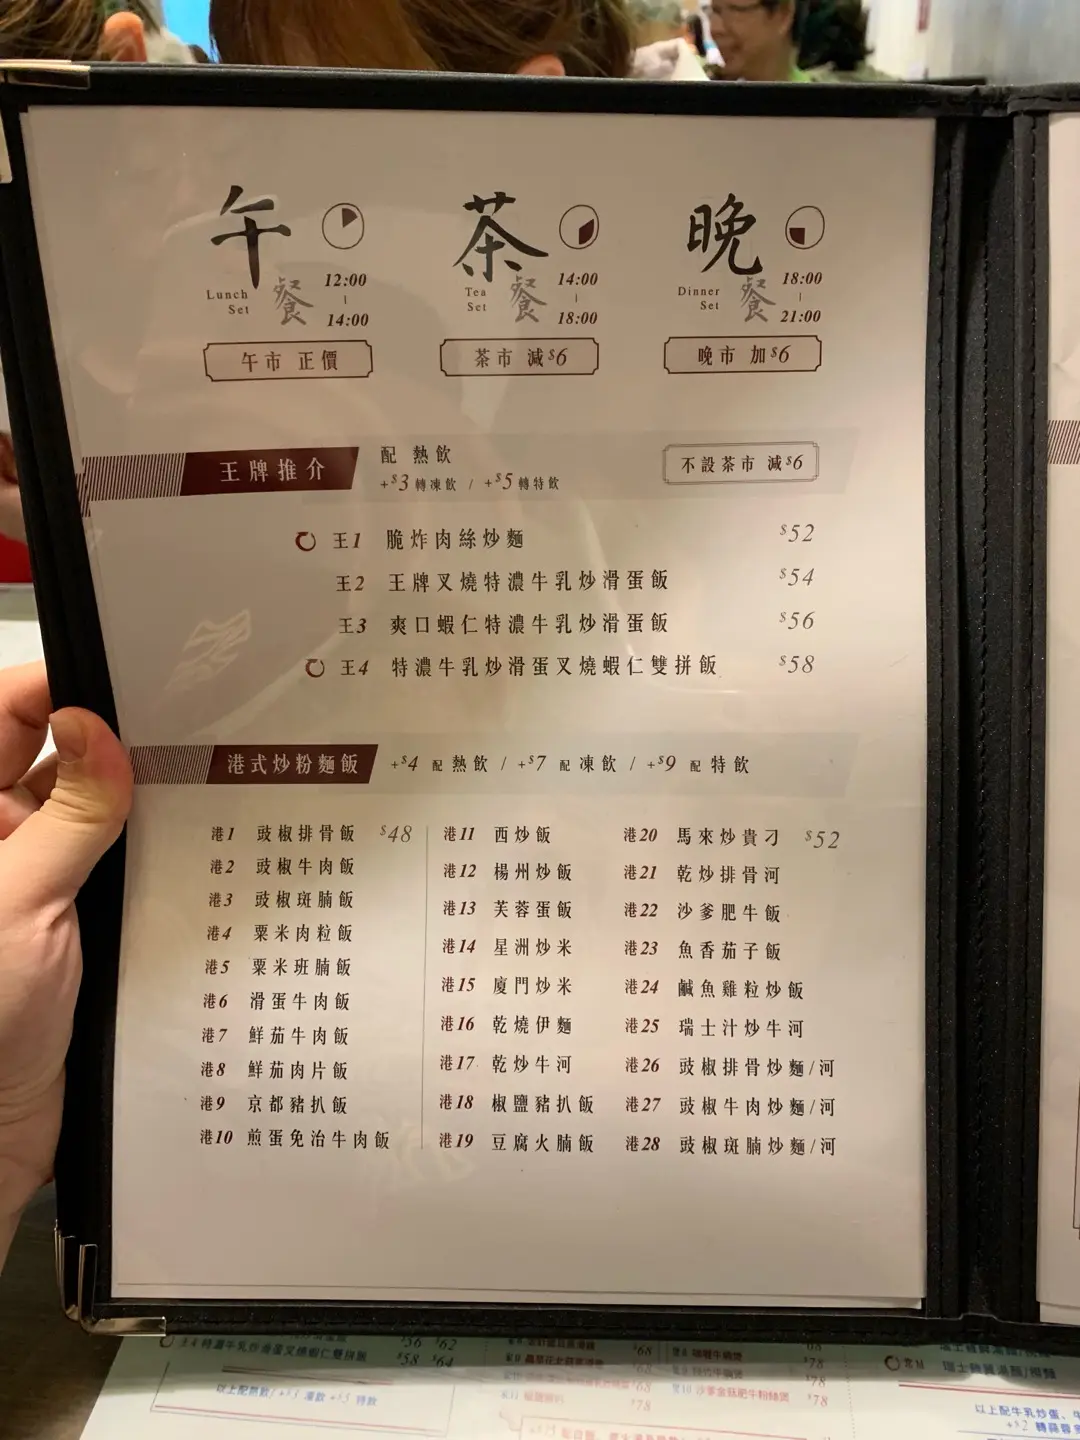 午餐
Lunch Set
12:00
14:00
午市 正價
茶餐
Tea Set
14:00
18:00
茶市 減$6
晚餐
Dinner Set
18:00
21:00
晚市 加$6
王牌推介
配 熱飲
+$3 轉凍飲 / +$5 轉特飲
不設茶市 減$6
王1 脆炸肉絲炒麵 $52
王2 王牌叉燒特濃牛乳炒滑蛋飯 $54
王3 爽口蝦仁特濃牛乳炒滑蛋飯 $56
王4 特濃牛乳炒滑蛋叉燒蝦仁雙拼飯 $58
港式炒粉麵飯
+$4 配 熱飲 / +$7 配 凍飲 / +$9 配 特飲
港1 豉椒排骨飯 $48
港2 豉椒牛肉飯
港3 豉椒斑腩飯
港4 粟米肉粒飯
港5 粟米班腩飯
港6 滑蛋牛肉飯
港7 鮮茄牛肉飯
港8 鮮茄肉片飯
港9 京都豬扒飯
港10 煎蛋免治牛肉飯
港11 西炒飯
港12 楊州炒飯
港13 芙蓉蛋飯
港14 星洲炒米
港15 廈門炒米
港16 乾燒伊麵
港17 乾炒牛河
港18 椒鹽豬扒飯
港19 豆腐火腩飯
港20 馬來炒貴刁 $52
港21 乾炒排骨河
港22 沙爹肥牛飯
港23 魚香茄子飯
港24 鹹魚雞粒炒飯
港25 瑞士汁炒牛河
港26 豉椒排骨炒麵/河
港27 豉椒牛肉炒麵/河
港28 豉椒斑腩炒麵/河
$56 $62
特濃牛乳炒滑蛋叉燒蝦仁雙拼飯 $58 $64
$68
$78
$68
$78
$78
$78